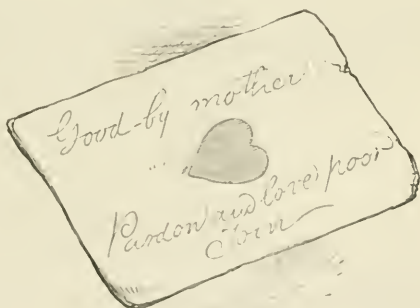 Good-by mother
Pardon and love poor
Tom